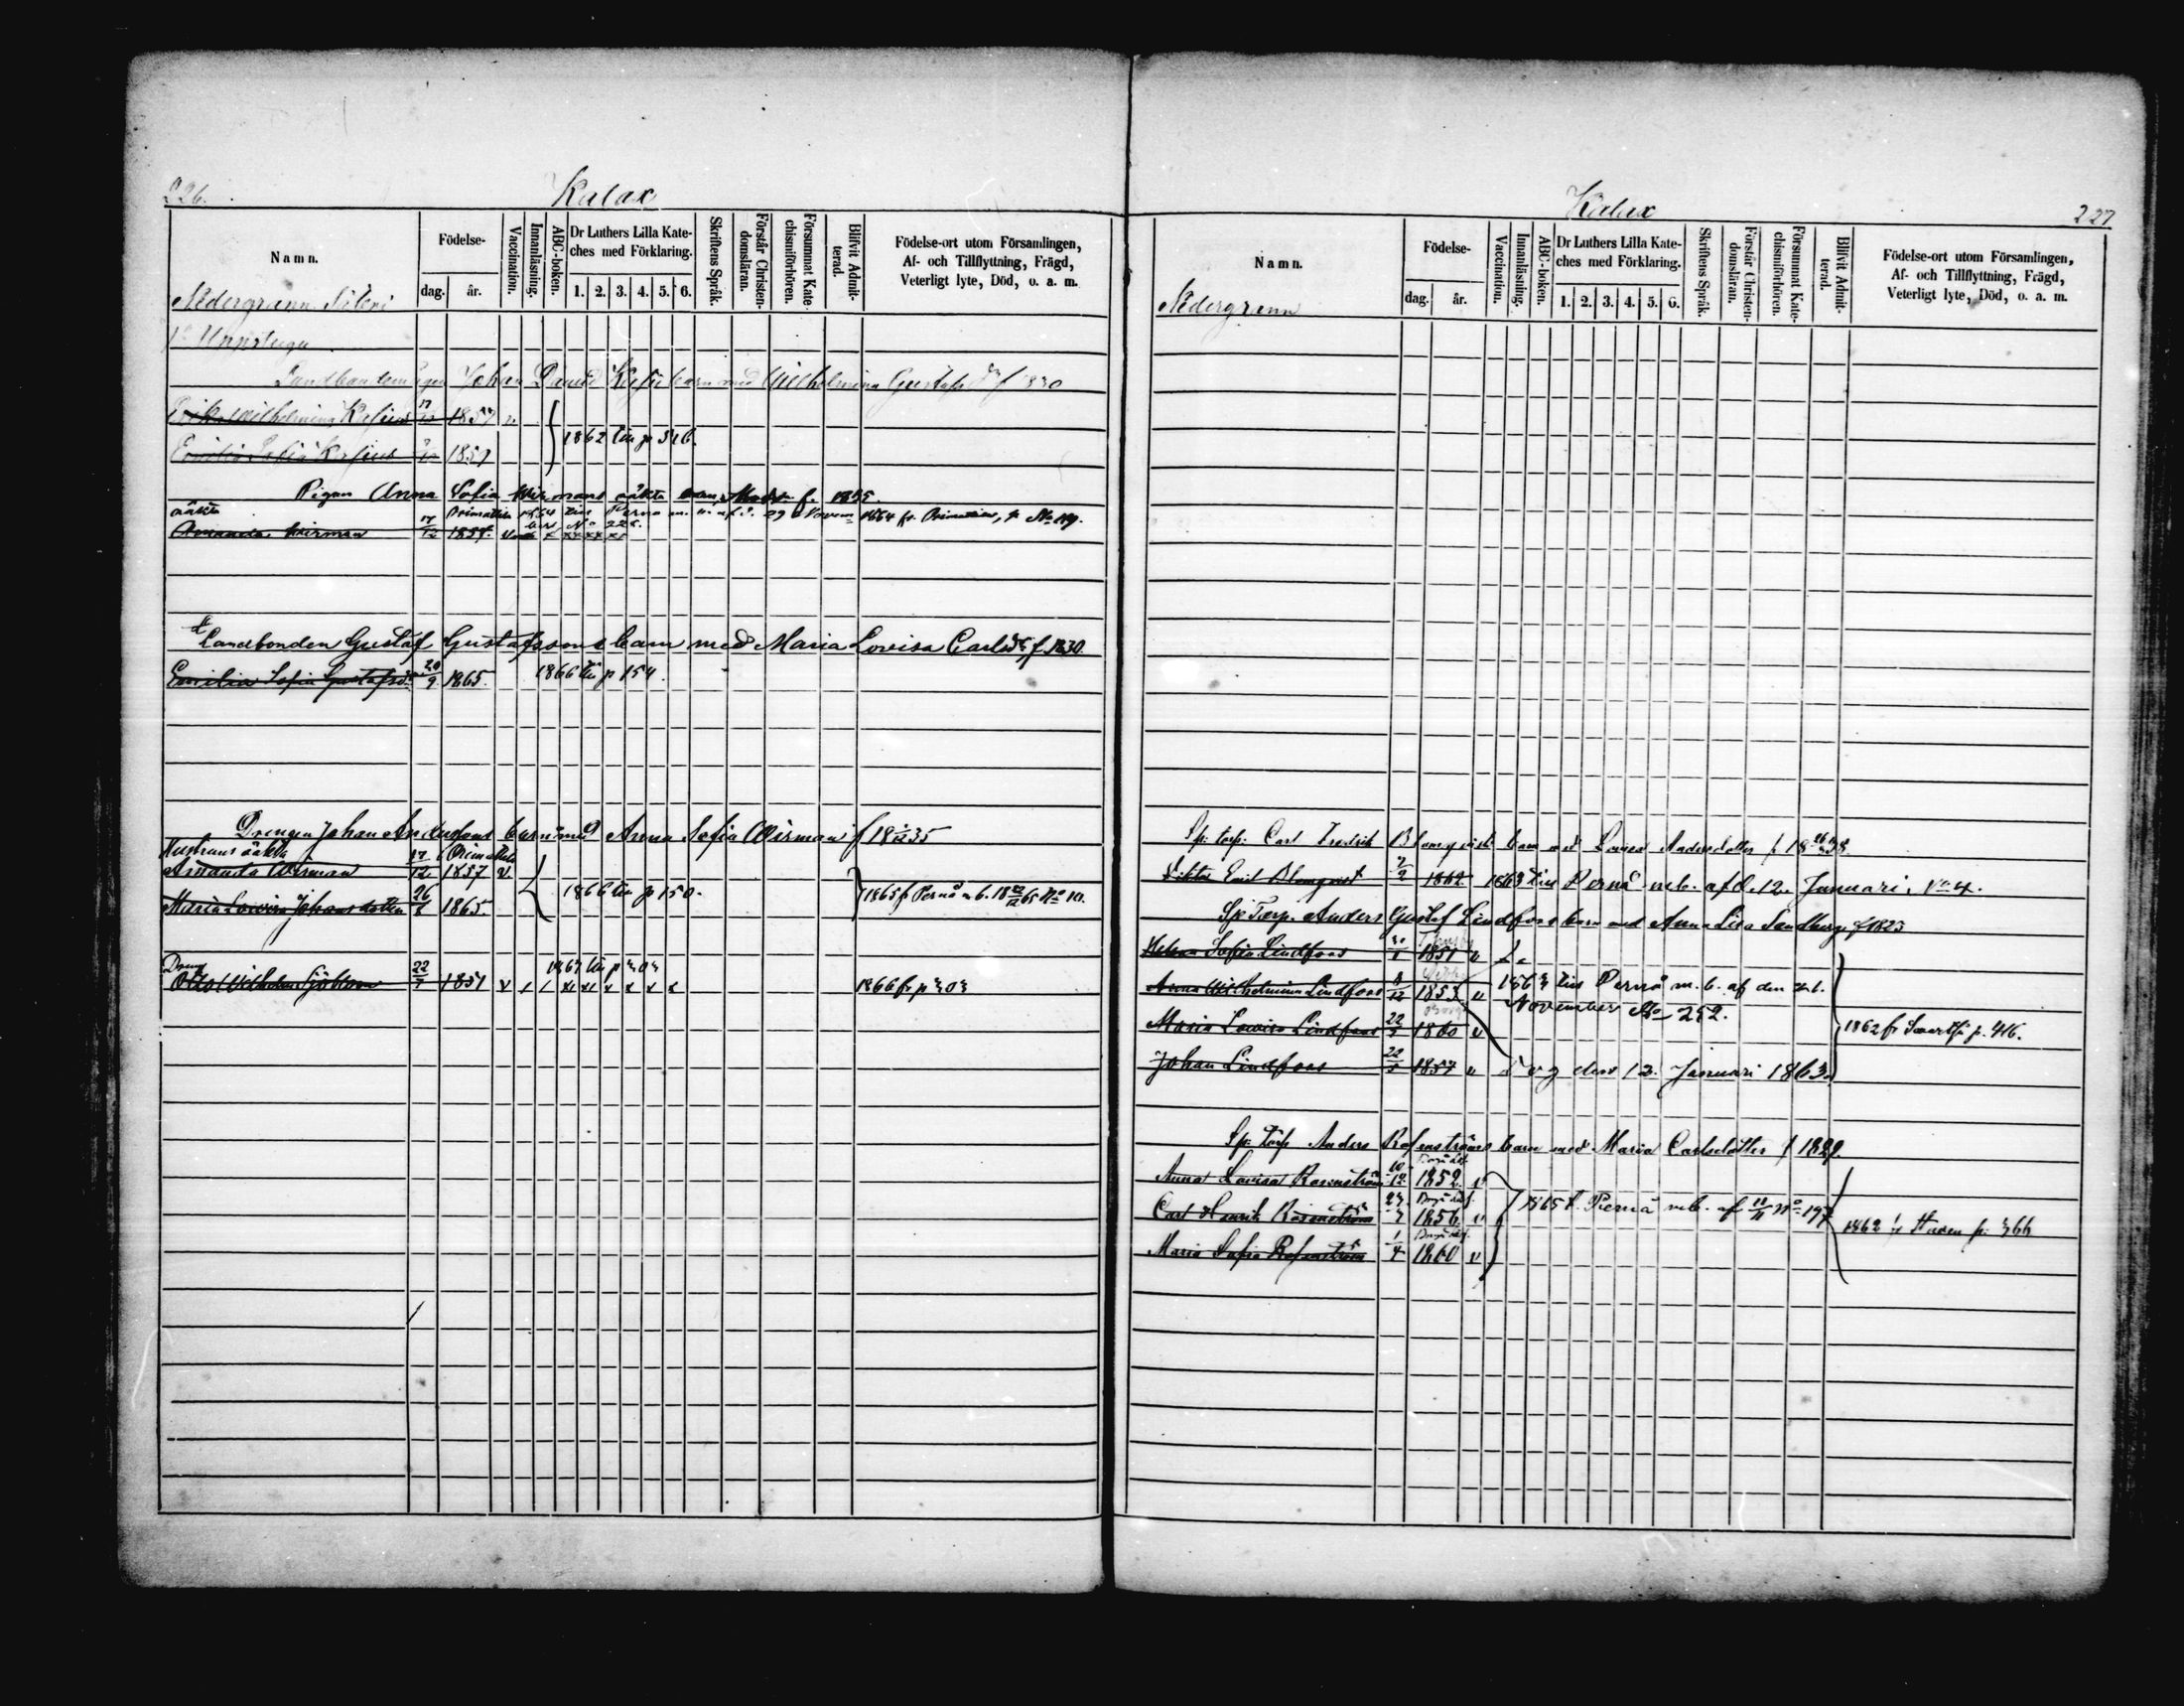 226.
Kalax
Namn.
Födelse-
dag.
år.
Vaccination.
Innanläsning.
ABC-boken.
Dr Luthers Lilla Kate-
ches med Förklaring.
1. 2. 3. 4. 5. 6.
Skriftens Språk.
Förstår Christen-
domsläran.
Försummat Kate-
chismiförhören.
Blifvit Admit-
terad.
Födelse-ort utom Församlingen,
Af- och Tillflyttning, Frägd,
Veterligt lyte, Död, o. a. m.
Nedergrann
Johan David barn med Wilhelmina Gustafsd f 1830
Wilhelmina 1857 v
1862 till p 316.
Emilia Sofia 1857
Pigan Anna Sofia oäkta barn f. 1835.
oäkta
Amanda Wirman 17/12 1857.
Landbonden Gustaf Gustafssons barn med Maria Lovisa Carlsdr f. 1830.
Emilia Sofia Gustafsdr 20/9 1865. 1866 till p 154.
Drengen Johan Anderssons barn med Anna Sofia Wirman f 1835
Hustruns oäkta
Amanda Wirman 17/12 1857 v
1866 till p 150.
1865 fr Pernå
Maria Lovisa Johansdotter 26/8 1865.
Dreng 1867 till p
Otto Wilhelm Sjöblom 22/7 1851 v
1866 fr p
Kalax
227
Namn.
Födelse-
dag.
år.
Vaccination.
Innanläsning.
ABC-boken.
Dr Luthers Lilla Kate-
ches med Förklaring.
1. 2. 3. 4. 5. 6.
Skriftens Språk.
Förstår Christen-
domsläran.
Försummat Kate-
chismiförhören.
Blifvit Admit-
terad.
Födelse-ort utom Församlingen,
Af- och Tillflyttning, Frägd,
Veterligt lyte, Död, o. a. m.
Nedergrann
Sp: torp: Carl Fredrik Blomqvists barn med Lovisa Andersdotter f 1838.
Viktor Emil Blomqvist 1862 1863 till Pernå m.b. af d. 12. Januari, No 4.
Sp: Torp. Anders Gustaf Lindfors barn med Anna Lisa Sandberg f 1823
Helena Sofia Lindfors 1851 v
Anna Wilhelmina Lindfors 8/12 1853 v
1863 till Pernå m. b. af den
November No 252.
Maria Lovisa Lindfors 22 1860 v
1862 fr p. 416.
Johan Lindfors 22 1857 v
Dog den 13. Januari 1863.
Sp: torp Anders Rosenströms barn med Maria Carlsdotter f 1829.
Anna Lovisa Rosenström 10/12 1852 v
Carl Henrik Rosenström 1856 v
1865 t. Pernå m.b. af No 197
1862 fr p. 366
Maria Sofia Rosenström 1/4 1860 v